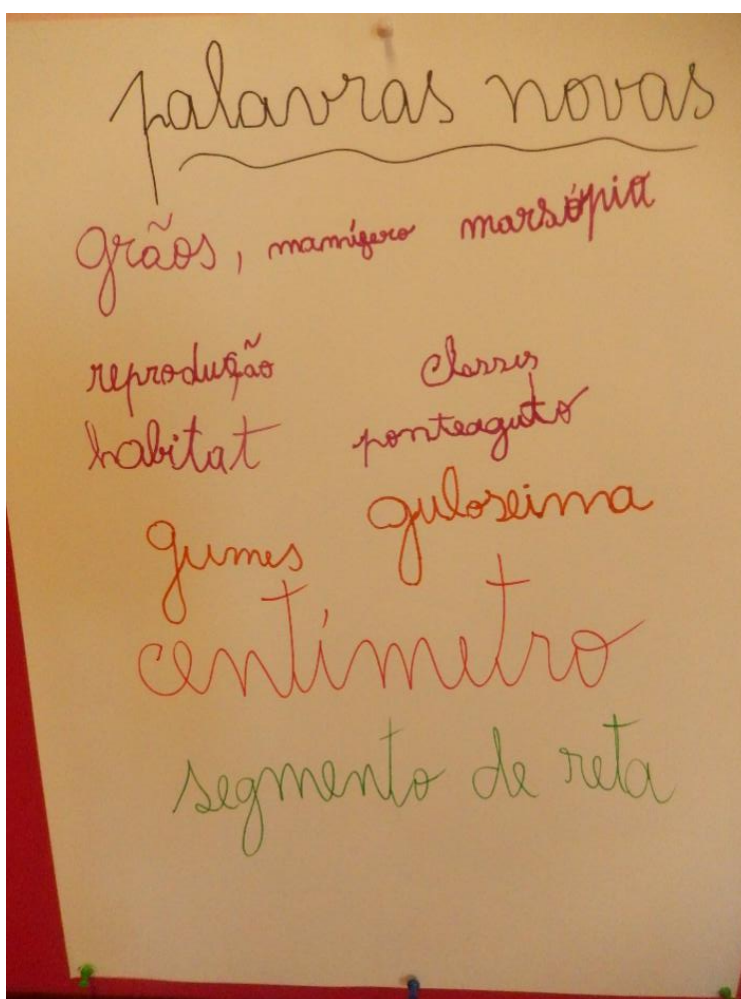 palavras novas
grãos, mamífero marsópia
reprodução classes
habitat ponteaguto
gumes guloseima
centímetro
segmento de reta